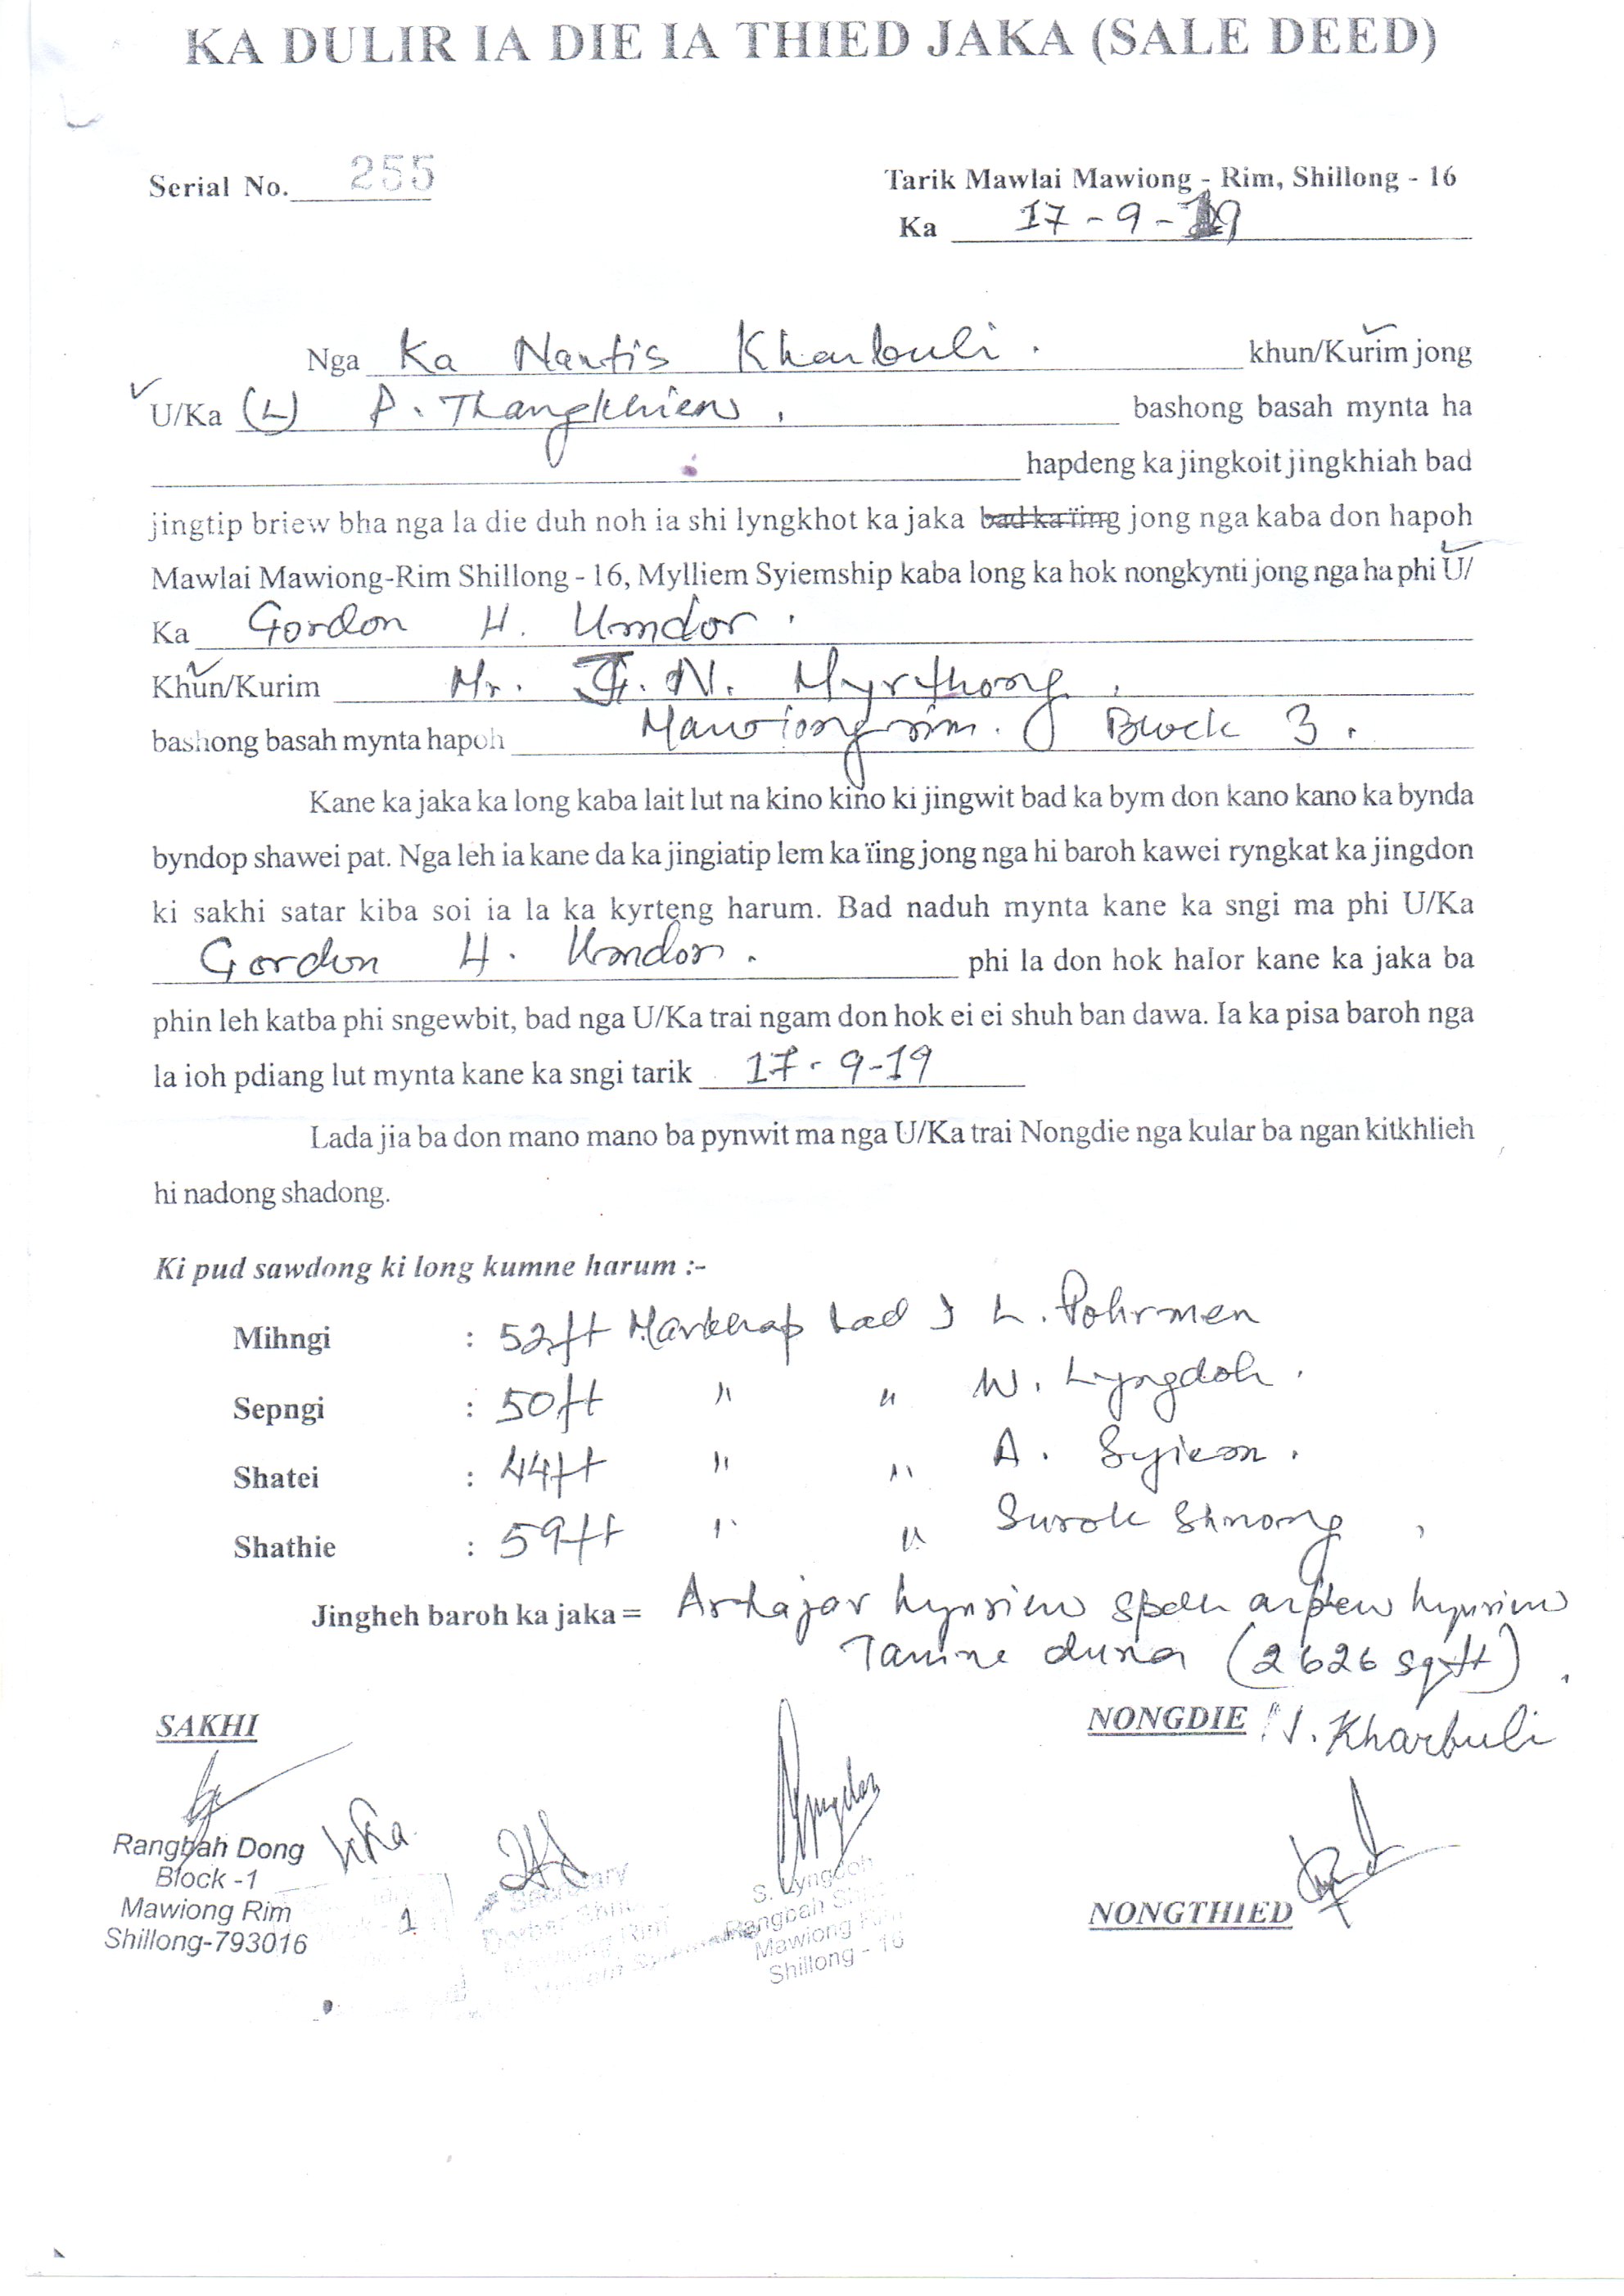 KA DULIR IA DIE IA THIED JAKA (SALE DEED)
Serial No. 255
Tarik Mawlai Mawiong - Rim, Shillong - 16
Ka 17-9-19
Nga Ka Nantis Kharbuli. khun/Kurim jong
U/Ka (L) P. Thangkhiew, bashong basah mynta ha
hapdeng ka jingkoit jingkhiah bad
jingtip briew bha nga la die duh noh ia shi lyngkhot ka jaka bad ka ïing jong nga kaba don hapoh
Mawlai Mawiong-Rim Shillong - 16, Mylliem Syiemship kaba long ka hok nongkynti jong nga ha phi U/
Ka Gordon H. Umdor.
Khun/Kurim Mr. N. Myrthong,
bashong basah mynta hapoh Mawiongrim. Block 3.
Kane ka jaka ka long kaba lait lut na kino kino ki jingwit bad ka bym don kano kano ka bynda
byndop shawei pat. Nga leh ia kane da ka jingiatip lem ka ïing jong nga hi baroh kawei ryngkat ka jingdon
ki sakhi satar kiba soi ia la ka kyrteng harum. Bad naduh mynta kane ka sngi ma phi U/Ka
Gordon H. Umdor. phi la don hok halor kane ka jaka ba
phin leh katba phi sngewbit, bad nga U/Ka trai ngam don hok ei ei shuh ban dawa. Ia ka pisa baroh nga
la ioh pdiang lut mynta kane ka sngi tarik 17-9-19
Lada jia ba don mano mano ba pynwit ma nga U/Ka trai Nongdie nga kular ba ngan kitkhlieh
hi nadong shadong.
Ki pud sawdong ki long kumne harum :-
Mihngi : 52ft Markhap bad L. Pohrmen
Sepngi : 50ft " " W. Lyngdoh.
Shatei : 44ft " " A. Syiem.
Shathie : 59ft " " Surok Shnong,
Jingheh baroh ka jaka = Arhajar hynriew spah arphew hynriew
duna (2626 sqft).
SAKHI
NONGDIE N. Kharbuli
Rangbah Dong
Block -1
Mawiong Rim
Shillong-793016
1
Secretary
S. Lyngdoh
Rangbah
Mawiong Rim
Shillong - 16
NONGTHIED